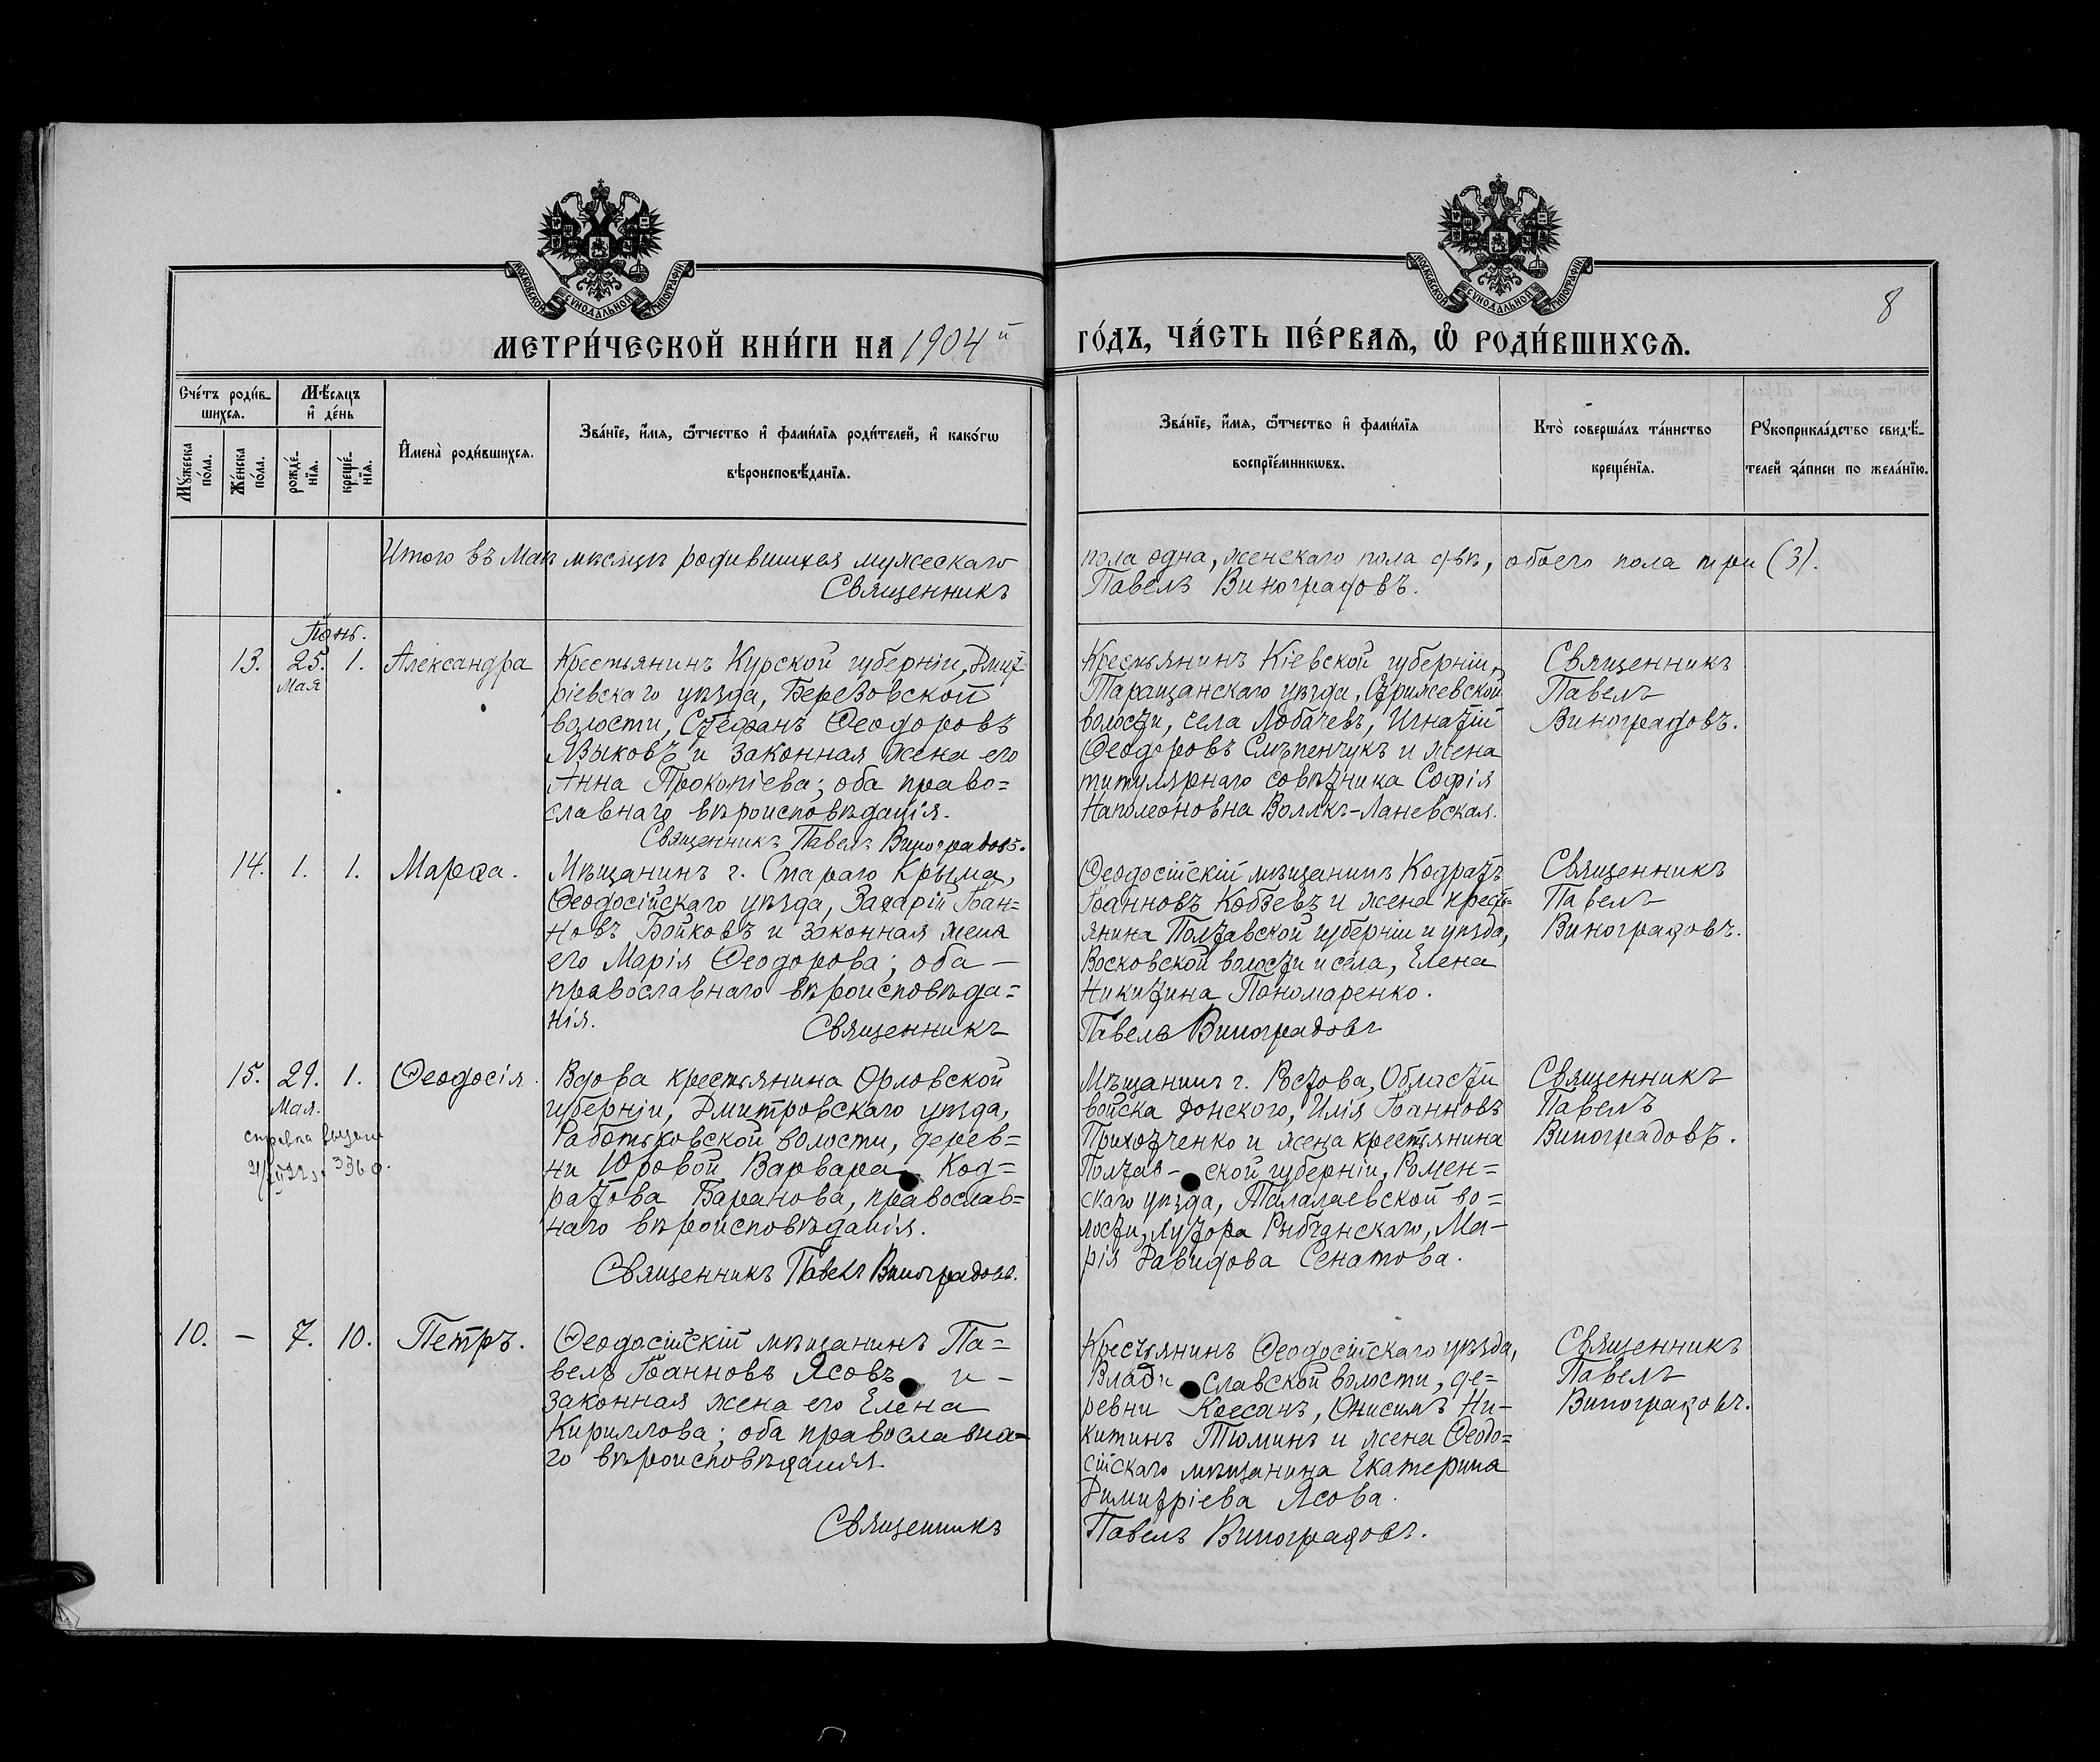 МОСКОВСКОЙ СУНОДАЛЬНОЙ ТИПОГРАФІИ
МОСКОВСКОЙ СУНОДАЛЬНОЙ ТИПОГРАФІИ
8
МЕТРИ́ЧЕСКОЙ КНИ́ГИ НА 1904й ГО́ДЪ, ЧА́СТЬ ПЕ́РВАѦ, Ѡ РОДИ́ВШИХСѦ.
Сче́тъ роди́в-
шихсѧ.
Мѣ́сѧцъ
и҆ де́нь
Мꙋ́жеска
по́ла.
Же́нска
по́ла.
рожде́-
нїѧ.
креще́-
нїѧ.
И҆мена̀ роди́вшихсѧ.
Зва́нїе, и҆́мѧ, ѻ҆́тчество и҆ фами́лїѧ роди́телей, и҆ како́гѡ
вѣроисповѣ́данїѧ.
Зва́нїе, и҆́мѧ, ѻ҆́тчество и҆ фами́лїѧ
воспрїе́мникѡвъ.
Кто̀ соверша́лъ та́инство
креще́нїѧ.
Рꙋкоприкла́дство свидѣ́-
телей за́писи по жела́нїю.
Итого въ Маѣ мѣсяцѣ родившихся мужескаго
Священникъ
пола одна, женскаго пола двѣ, обоего пола три (3).
Павелъ Виноградовъ.
Іюнь.
13. 25. 1. Александра
Мая
Крестьянинъ Курской губерніи, Дмит-
ріевскаго уѣзда, Березовской
волости, Стефанъ Ѳеодоровъ
Языковъ и законная жена его
Анна Прокопіева; оба право=
славнаго вѣроисповѣданія.
Священникъ Павелъ Виноградовъ.
Крестьянинъ Кіевской губерніи,
Таращанскаго уѣзда, Стрижевской
волости, села Лобачевъ, Игнатій
Ѳеодоровъ Смѣпенчукъ и жена
титулярнаго совѣтника Софія
Наполеоновна Воллкъ-Ланевская.
Священникъ
Павелъ
Виноградовъ.
14. 1. 1. Марѳа.
Мѣщанинъ г. Стараго Крыма,
Ѳеодосійскаго уѣзда, Захарій Іоан=
новъ Бойковъ и законная жена
его Марія Ѳеодорова; оба -
православнаго вѣроисповѣда=
нія. Священникъ
Ѳеодосійскій мѣщанинъ Кодратъ
Іоанновъ Кобзевъ и жена крест-
янина Полтавской губерніи и уѣзда,
Восковской волости и села, Елена
Никитина Пономаренко.
Павелъ Виноградовъ
Священникъ
Павелъ
Виноградовъ.
15. 29. 1. Ѳеодосія.
Мая.
справка
336
Вдова крестьянина Орловской
губерніи, Дмитровскаго уѣзда,
Работьковской волости, дерев=
ни Юровой Варвара Код=
ратова Баранова, православ=
наго вѣроисповѣданія.
Священникъ Павелъ Виноградовъ.
Мѣщанинъ г. Ростова, Области
войска Донского, Илія Іоанновъ
Приходченко и жена крестьянина
Полтав- ской губерніи, Ромен=
скаго уѣзда, Талалаевской во=
лости, хутора Рыбчанскаго, Ма-
рія Давидова Сенатова.
Священникъ
Павелъ
Виноградовъ.
10. - 7. 10. Петръ.
Ѳеодосійскій мѣщанинъ Па=
велъ Іоанновъ Ясовъ и -
законная жена его Елена
Кириллова; оба православна=
го вѣроисповѣданія.
Священникъ
Крестьянинъ Ѳеодосійскаго уѣзда,
Влади славской волости, де=
ревни Коссанъ, Онисимъ Ни-
китинъ Тюминъ и жена Ѳеодо=
сійскаго мѣщанина Екатерина
Димитріева Ясова.
Павелъ Виноградовъ.
Священникъ
Павелъ
Виноградовъ.